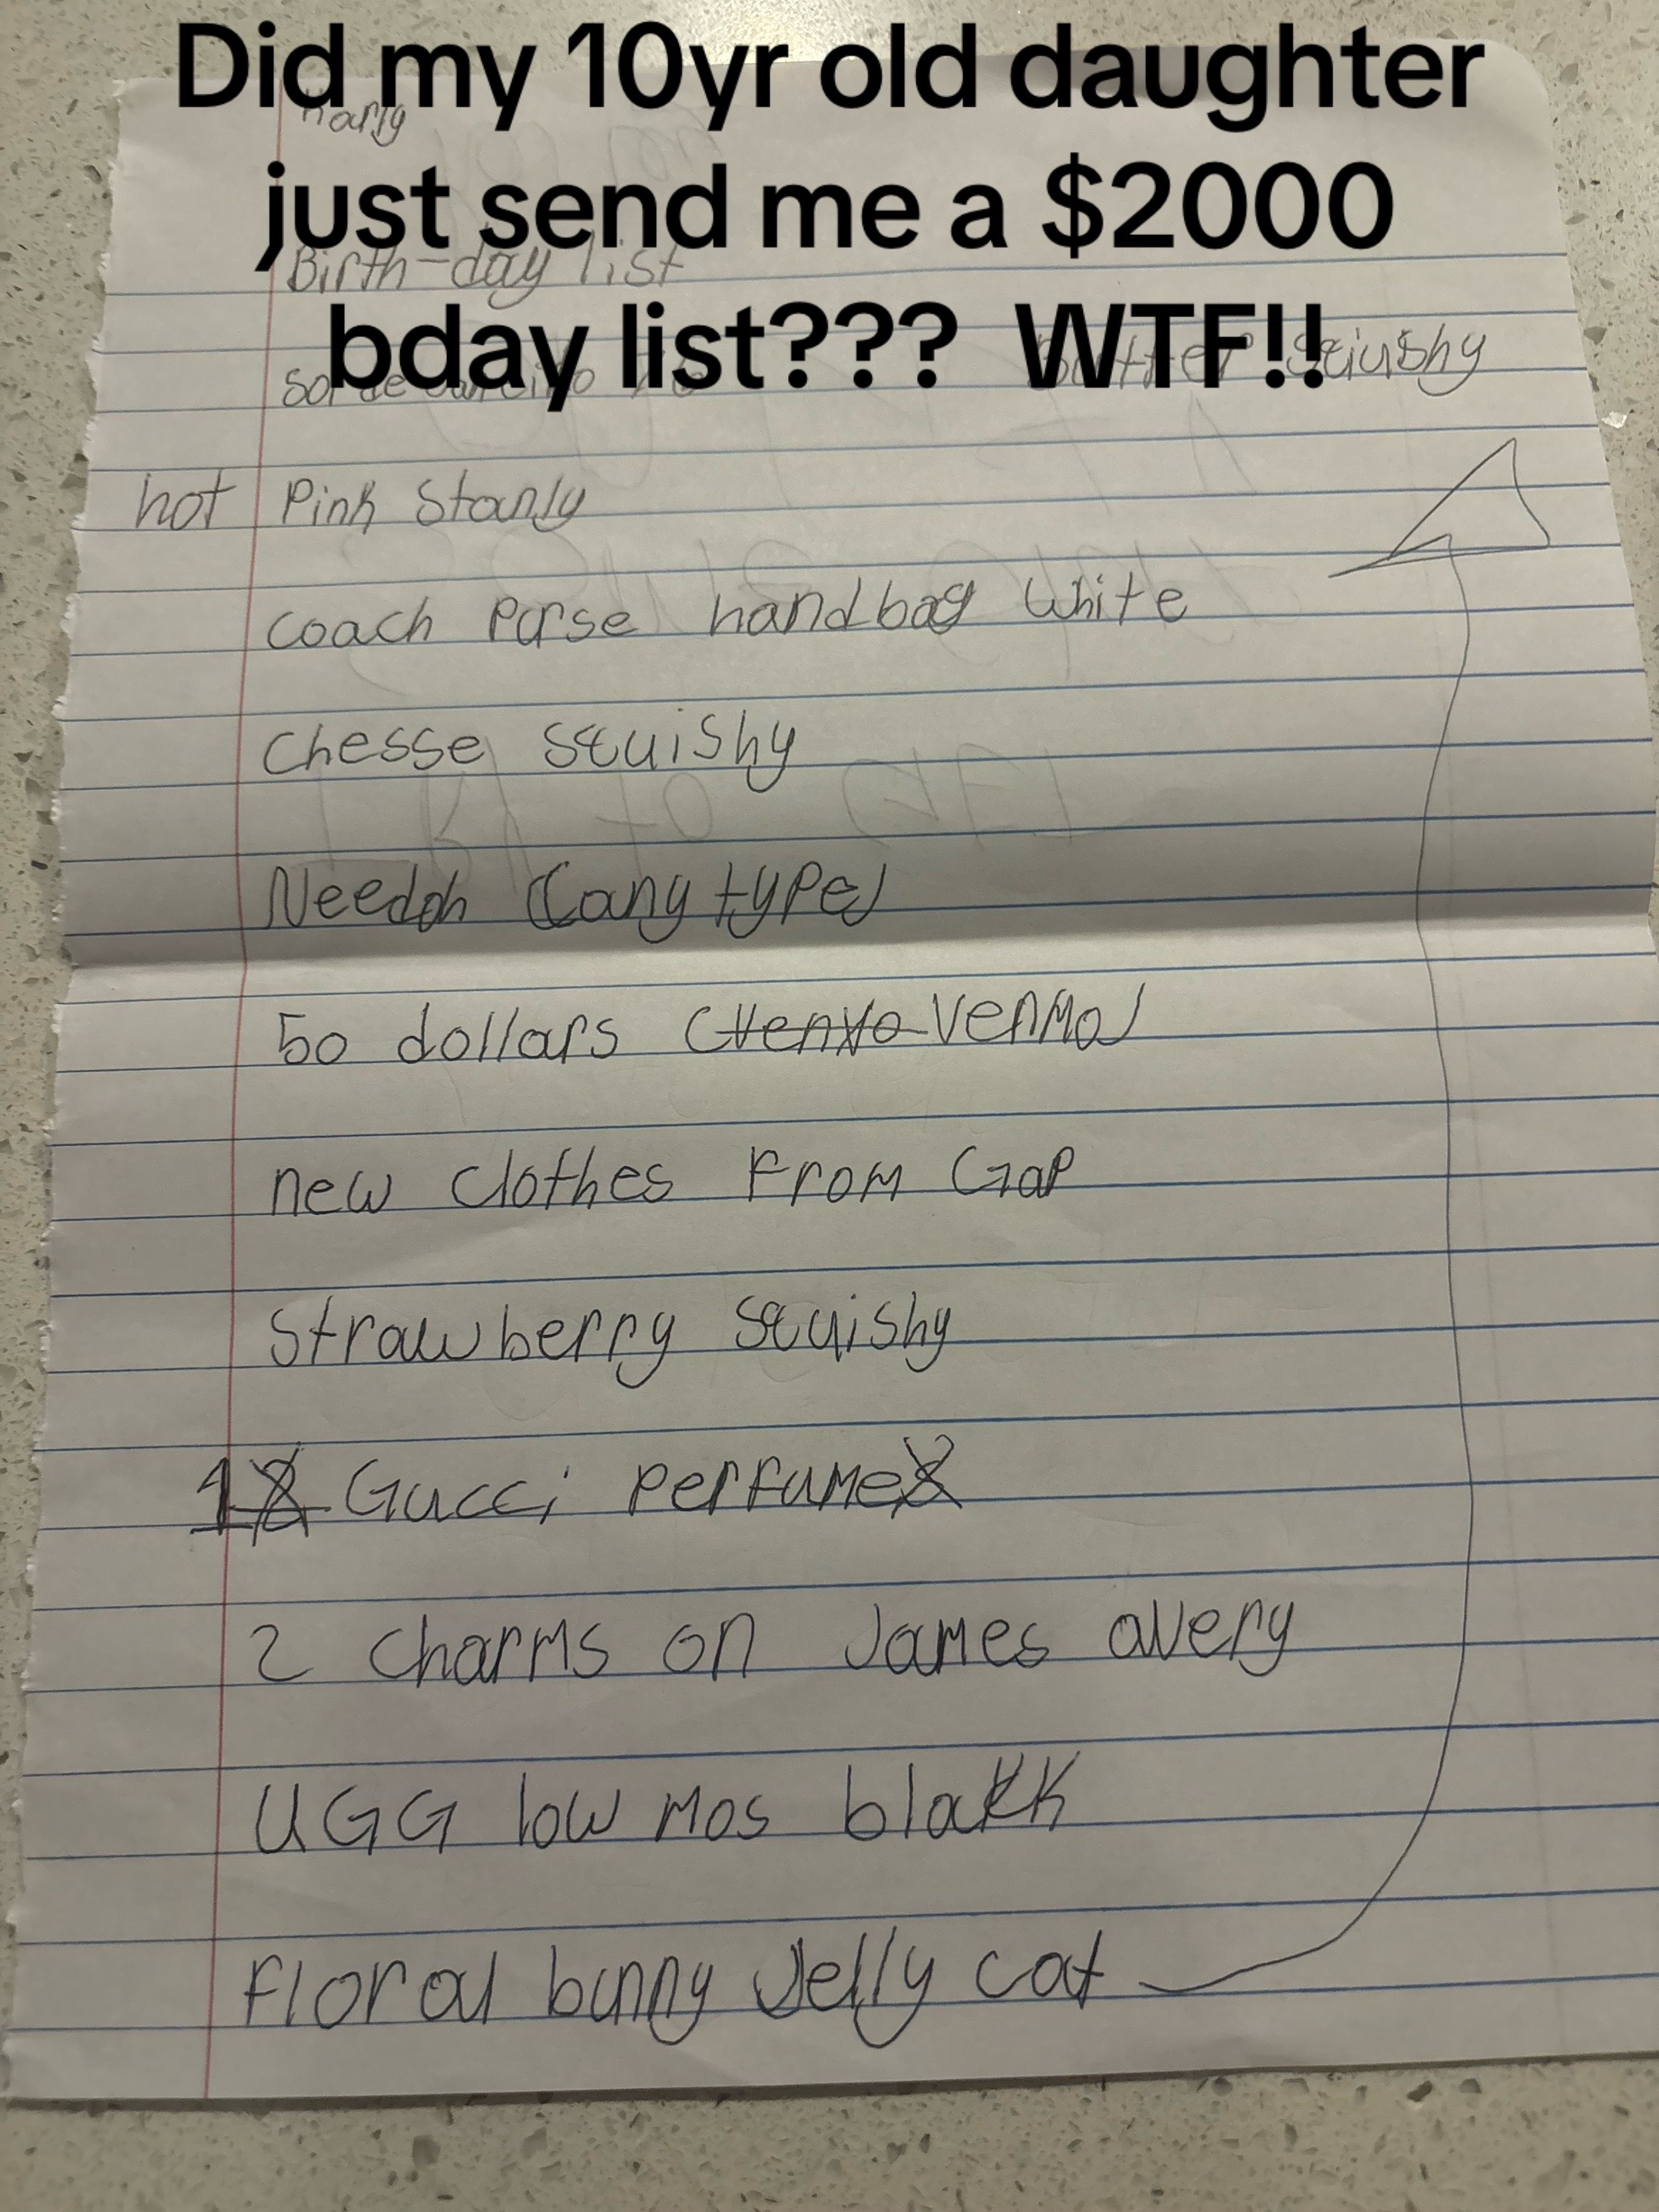 Did my 10yr old daughter
just send me a $2000
bday list??? WTF!!
Birth-day list
squishy
hot Pink Stanly
coach Purse handbag White
Chesse squishy
Needoh (any type)
50 dollars (Venmo)
new clothes From Gap
Strawberry squishy
1 Gucci Perfume
2 charms on James avery
UGG low Mos black
Floral bunny Jelly cat